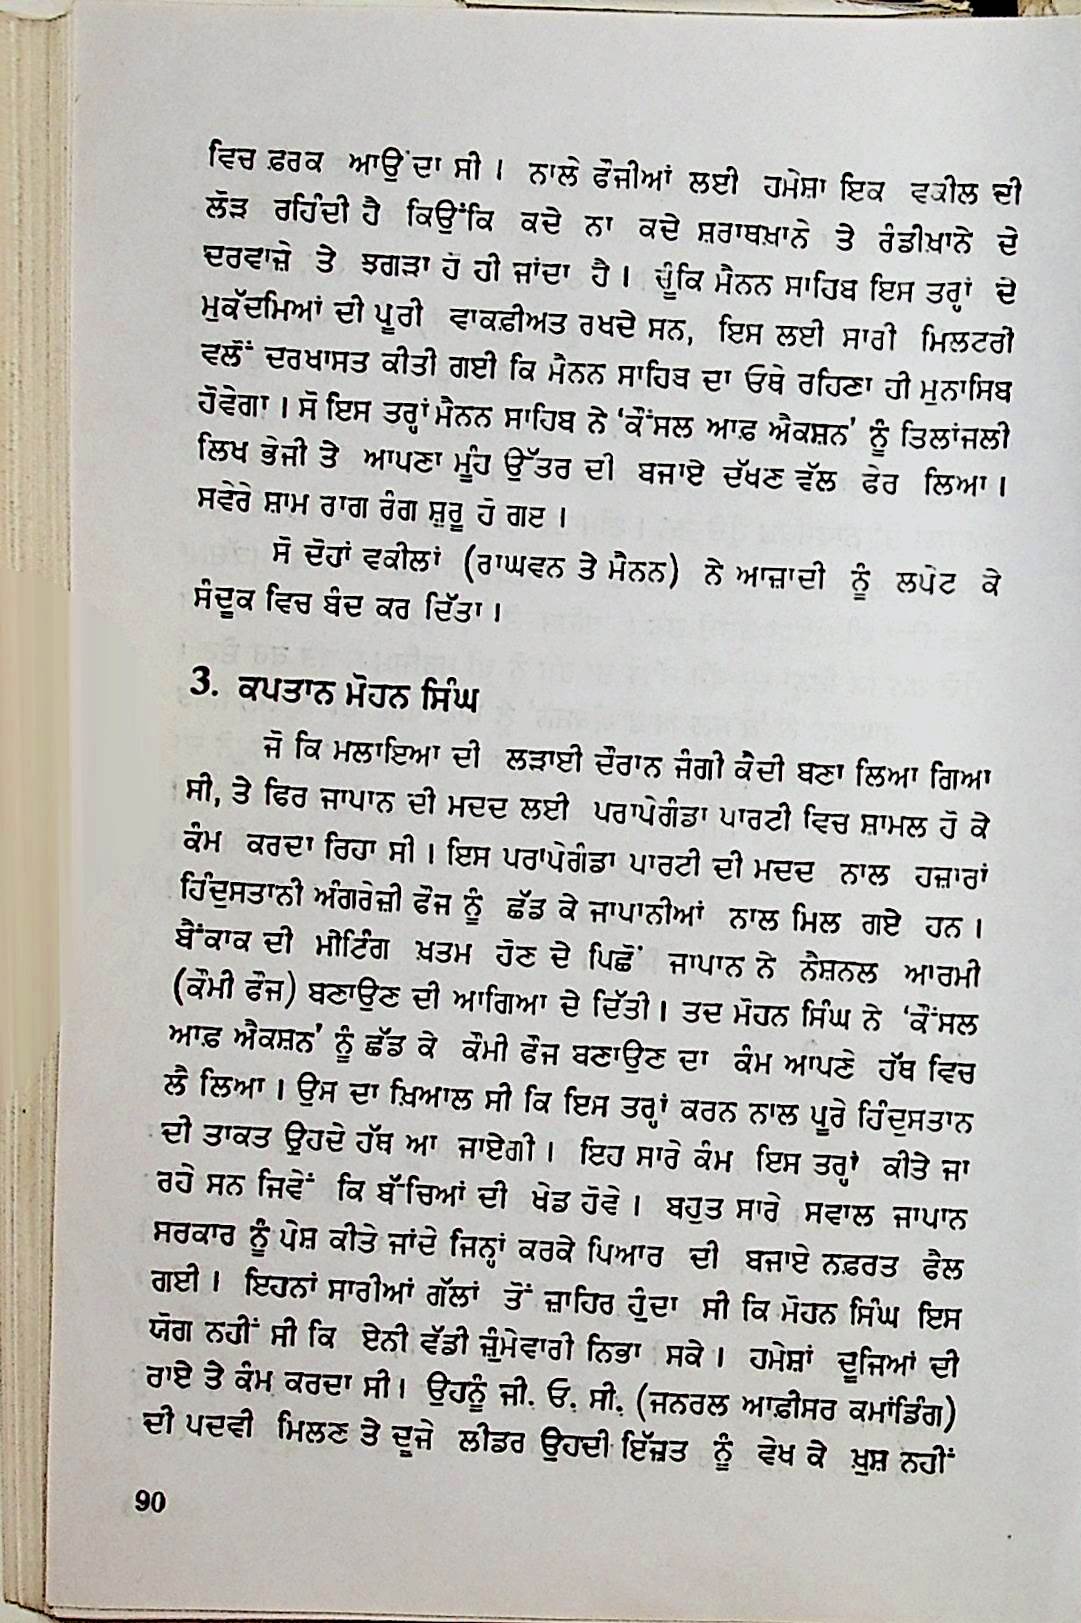 ਵਿਚ ਫ਼ਰਕ ਆਉਂਦਾ ਸੀ । ਨਾਲੇ ਫੌਜੀਆਂ ਲਈ ਹਮੇਸ਼ਾ ਇਕ ਵਕੀਲ ਦੀ
ਲੋੜ ਰਹਿੰਦੀ ਹੈ ਕਿਉਂਕਿ ਕਦੇ ਨਾ ਕਦੇ ਸ਼ਰਾਬਖ਼ਾਨੇ ਤੇ ਰੰਡੀਖ਼ਾਨੇ ਦੇ
ਦਰਵਾਜ਼ੇ ਤੇ ਝਗੜਾ ਹੋ ਹੀ ਜਾਂਦਾ ਹੈ । ਚੂੰਕਿ ਮੈਨਨ ਸਾਹਿਬ ਇਸ ਤਰ੍ਹਾਂ ਦੇ
ਮੁਕੱਦਮਿਆਂ ਦੀ ਪੂਰੀ ਵਾਕਫ਼ੀਅਤ ਰਖਦੇ ਸਨ, ਇਸ ਲਈ ਸਾਰੀ ਮਿਲਟਰੀ
ਵਲੋਂ ਦਰਖਾਸਤ ਕੀਤੀ ਗਈ ਕਿ ਮੈਨਨ ਸਾਹਿਬ ਦਾ ਓਥੇ ਰਹਿਣਾ ਹੀ ਮੁਨਾਸਿਬ
ਹੋਵੇਗਾ । ਸੋ ਇਸ ਤਰ੍ਹਾਂ ਮੈਨਨ ਸਾਹਿਬ ਨੇ ‘ਕੌਂਸਲ ਆਫ਼ ਐਕਸ਼ਨ’ ਨੂੰ ਤਿਲਾਂਜਲੀ
ਲਿਖ ਭੇਜੀ ਤੇ ਆਪਣਾ ਮੂੰਹ ਉੱਤਰ ਦੀ ਬਜਾਏ ਦੱਖਣ ਵੱਲ ਫੇਰ ਲਿਆ ।
ਸਵੇਰੇ ਸ਼ਾਮ ਰਾਗ ਰੰਗ ਸ਼ੁਰੂ ਹੋ ਗਏ ।
ਸੋ ਦੋਹਾਂ ਵਕੀਲਾਂ (ਰਾਘਵਨ ਤੇ ਮੈਨਨ) ਨੇ ਆਜ਼ਾਦੀ ਨੂੰ ਲਪੇਟ ਕੇ
ਸੰਦੂਕ ਵਿਚ ਬੰਦ ਕਰ ਦਿੱਤਾ ।
3. ਕਪਤਾਨ ਮੋਹਨ ਸਿੰਘ
ਜੋ ਕਿ ਮਲਾਇਆ ਦੀ ਲੜਾਈ ਦੌਰਾਨ ਜੰਗੀ ਕੈਦੀ ਬਣਾ ਲਿਆ ਗਿਆ
ਸੀ, ਤੇ ਫਿਰ ਜਾਪਾਨ ਦੀ ਮਦਦ ਲਈ ਪਰਾਪੇਗੰਡਾ ਪਾਰਟੀ ਵਿਚ ਸ਼ਾਮਲ ਹੋ ਕੇ
ਕੰਮ ਕਰਦਾ ਰਿਹਾ ਸੀ । ਇਸ ਪਰਾਪੇਗੰਡਾ ਪਾਰਟੀ ਦੀ ਮਦਦ ਨਾਲ ਹਜ਼ਾਰਾਂ
ਹਿੰਦੁਸਤਾਨੀ ਅੰਗਰੇਜ਼ੀ ਫੌਜ ਨੂੰ ਛੱਡ ਕੇ ਜਾਪਾਨੀਆਂ ਨਾਲ ਮਿਲ ਗਏ ਹਨ ।
ਬੈਂਕਾਕ ਦੀ ਮੀਟਿੰਗ ਖ਼ਤਮ ਹੋਣ ਦੇ ਪਿਛੋਂ ਜਾਪਾਨ ਨੇ ਨੈਸ਼ਨਲ ਆਰਮੀ
(ਕੌਮੀ ਫੌਜ) ਬਣਾਉਣ ਦੀ ਆਗਿਆ ਦੇ ਦਿੱਤੀ । ਤਦ ਮੋਹਨ ਸਿੰਘ ਨੇ ‘ਕੌਂਸਲ
ਆਫ਼ ਐਕਸ਼ਨ’ ਨੂੰ ਛੱਡ ਕੇ ਕੌਮੀ ਫੌਜ ਬਣਾਉਣ ਦਾ ਕੰਮ ਆਪਣੇ ਹੱਥ ਵਿਚ
ਲੈ ਲਿਆ । ਉਸ ਦਾ ਖ਼ਿਆਲ ਸੀ ਕਿ ਇਸ ਤਰ੍ਹਾਂ ਕਰਨ ਨਾਲ ਪੂਰੇ ਹਿੰਦੁਸਤਾਨ
ਦੀ ਤਾਕਤ ਉਹਦੇ ਹੱਥ ਆ ਜਾਏਗੀ । ਇਹ ਸਾਰੇ ਕੰਮ ਇਸ ਤਰ੍ਹਾਂ ਕੀਤੇ ਜਾ
ਰਹੇ ਸਨ ਜਿਵੇਂ ਕਿ ਬੱਚਿਆਂ ਦੀ ਖੇਡ ਹੋਵੇ । ਬਹੁਤ ਸਾਰੇ ਸਵਾਲ ਜਾਪਾਨ
ਸਰਕਾਰ ਨੂੰ ਪੇਸ਼ ਕੀਤੇ ਜਾਂਦੇ ਜਿਨ੍ਹਾਂ ਕਰਕੇ ਪਿਆਰ ਦੀ ਬਜਾਏ ਨਫ਼ਰਤ ਫੈਲ
ਗਈ । ਇਹਨਾਂ ਸਾਰੀਆਂ ਗੱਲਾਂ ਤੋਂ ਜ਼ਾਹਿਰ ਹੁੰਦਾ ਸੀ ਕਿ ਮੋਹਨ ਸਿੰਘ ਇਸ
ਯੋਗ ਨਹੀਂ ਸੀ ਕਿ ਏਨੀ ਵੱਡੀ ਜ਼ੁੰਮੇਵਾਰੀ ਨਿਭਾ ਸਕੇ । ਹਮੇਸ਼ਾਂ ਦੂਜਿਆਂ ਦੀ
ਰਾਏ ਤੇ ਕੰਮ ਕਰਦਾ ਸੀ । ਉਹਨੂੰ ਜੀ. ਓ. ਸੀ. (ਜਨਰਲ ਆਫ਼ੀਸਰ ਕਮਾਂਡਿੰਗ)
ਦੀ ਪਦਵੀ ਮਿਲਣ ਤੇ ਦੂਜੇ ਲੀਡਰ ਉਹਦੀ ਇੱਜ਼ਤ ਨੂੰ ਵੇਖ ਕੇ ਖ਼ੁਸ਼ ਨਹੀਂ
90